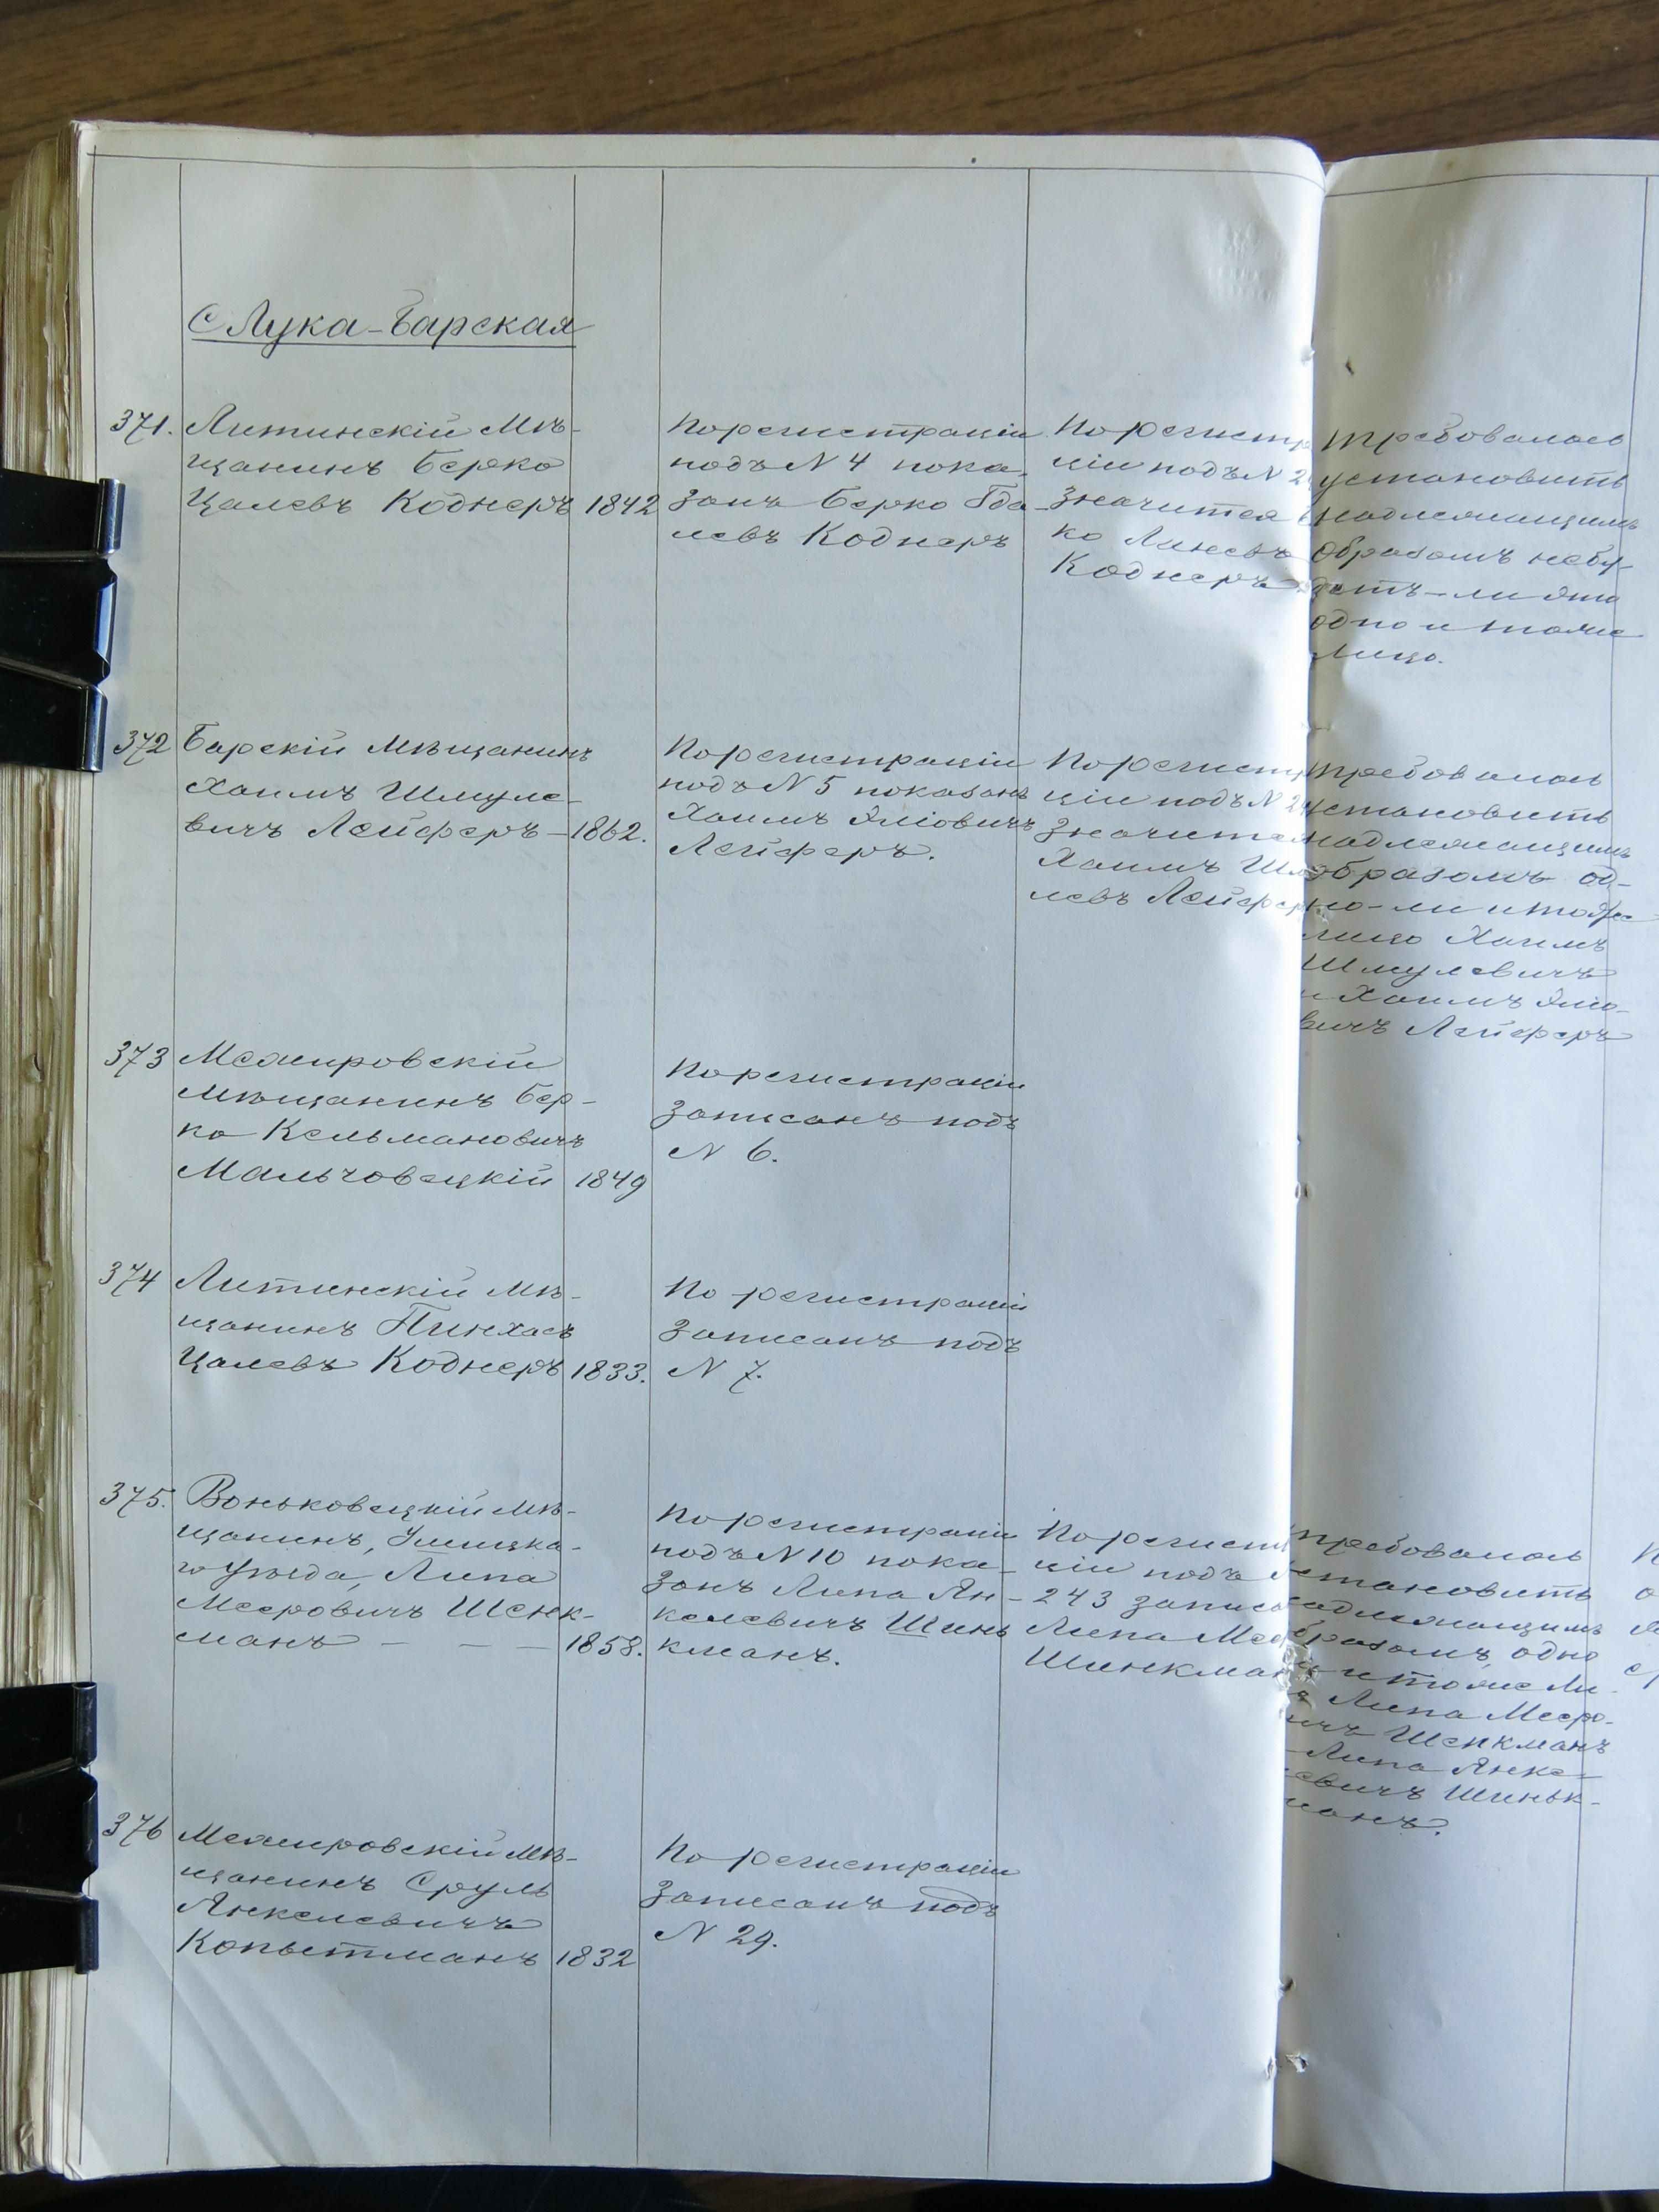 С Лука-Барская
371. Литинскій Мѣ-
щанинъ Берко
Цалевъ Коднеръ 1842
По регистраціи
подъ N 4 пока-
занъ Берко Гда-
левъ Коднеръ
По регистр
ціи подъ N 2
значится
ко
Коднеръ
Требовалось
установить
надлежащимъ
образомъ небу-
детъ-ли это
одно и тоже
лицо.
372 Барскій Мѣщанинъ
Хаимъ Шмуле-
вичъ Лейферъ — 1862.
По регистраціи
подъ N 5 показанъ
Хаимъ Эліовичъ
Лейферъ.
По регист
ціи подъ N 2
значится
Хаимъ
левъ Лейфер
Требовалось
установить
надлежащимъ
образомъ од-
но-ли и тоже
лицо Хаимъ
Шмулевичъ
и Хаимъ Эліо-
вичъ Лейферъ
373 Межировскій
мѣщанинъ Бер-
ко Кельмановичъ
Мальчовецкій 1849
По регистраціи
записанъ подъ
N 6.
374 Литинскій Мѣ-
щанинъ Пинхасъ
Цалевъ Коднеръ 1833.
По регистраціи
записанъ подъ
N 7.
375. Воньковецкій Мѣ-
щанинъ, Ушицка-
го Уѣзда, Липа
Мееровичъ Шенк-
манъ — — — 1858.
По регистраціи
подъ N 10 пока-
занъ Липа Ян-
келевичъ Шинь
кманъ.
По регист
ціи подъ
243 запис
Липа Мео
Шинкма
Требовалось
становить
адлежащимъ
бразомъ, одно
и тоже ли-
Липа Мееро-
ичъ Шенкманъ
Липа Янке-
евичъ Шиньк-
манъ.
376 Межировскій Мѣ-
щанинъ Сруль
Янкелевичъ
Копытманъ 1832
По регистраціи
записанъ подъ
N 29.